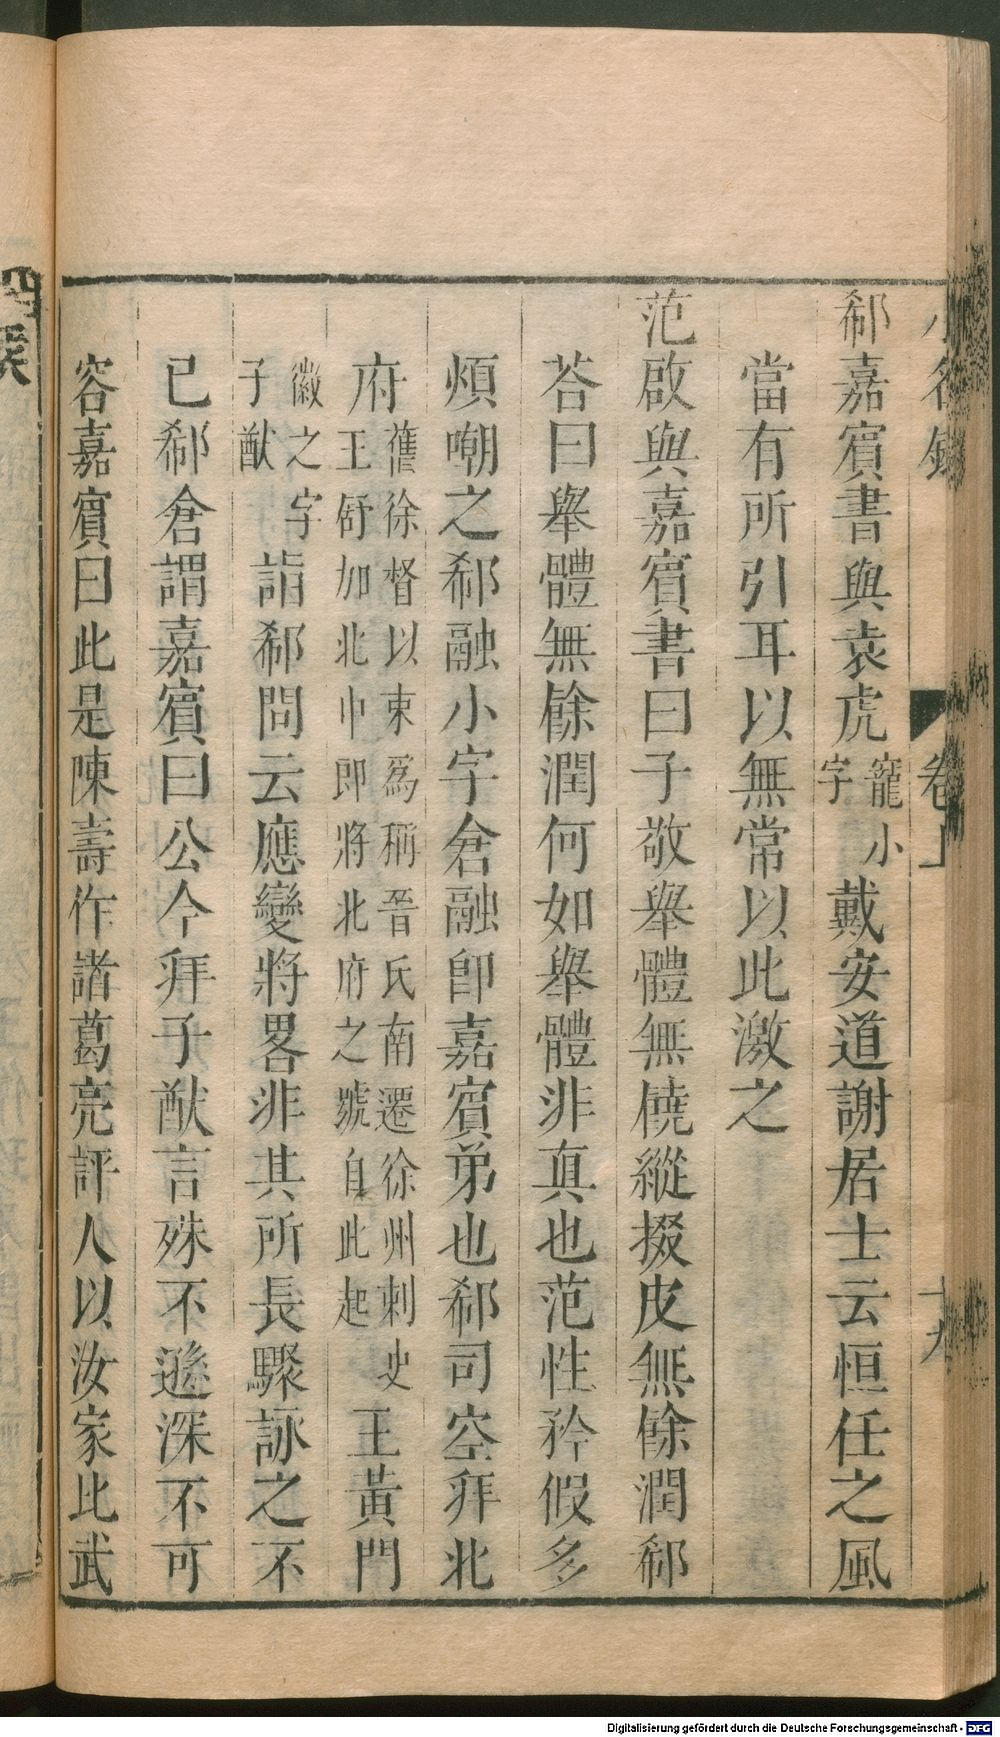 小名録
卷上
十九
郗嘉賓書與袁虎寵小字戴安道謝居士云恒任之風
當有所引耳以無常以此激之
范啟與嘉賓書曰子敬舉體無饒縱掇皮無餘潤郗
荅曰舉體無餘潤何如舉體非真也范性矜假多
煩嘲之郗融小字倉融卽嘉賓弟也郗司空拜北
府舊徐督以東爲稱晉氏南遷徐州刺史王舒加北中郎將北府之號自此起王黃門
徽之字子猷詣郗問云應變將畧非其所長驟詠之不
已郗倉謂嘉賓曰公今拜子猷言殊不遜深不可
容嘉賓曰此是陳壽作諸葛亮評人以汝家比武
Digitalisierung gefördert durch die Deutsche Forschungsgemeinschaft - DFG